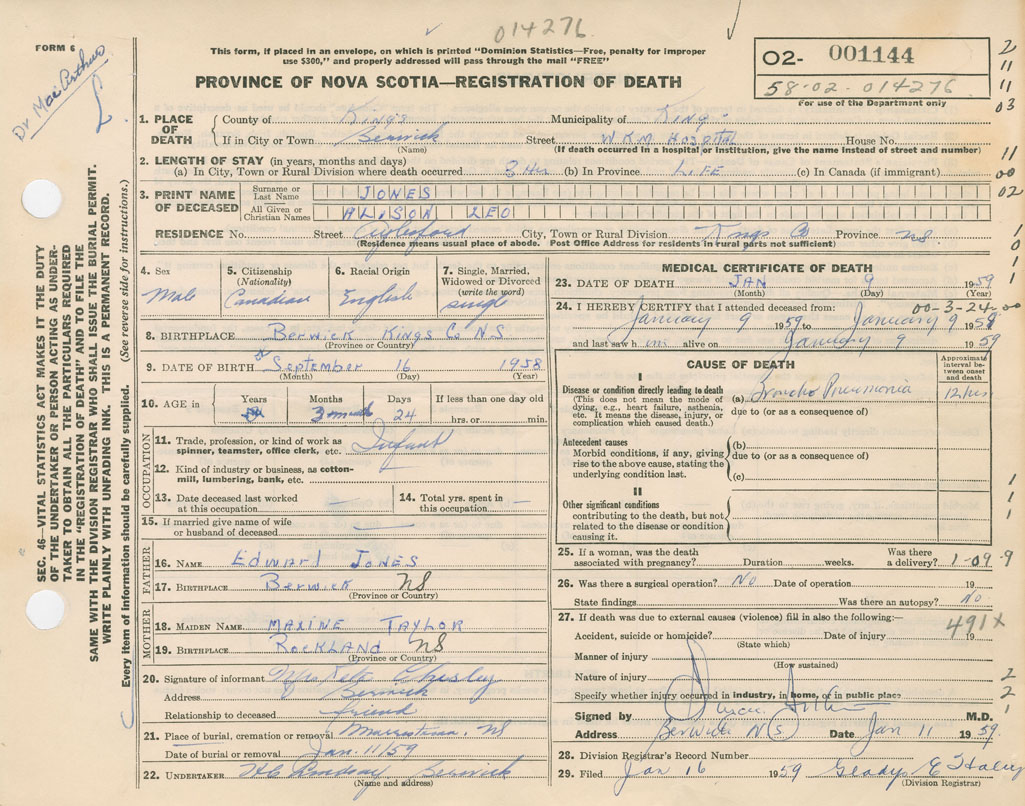 014276
FORM 6
Dr MacArthur
This form, if placed in an envelope, on which is printed "Dominion Statistics—Free, penalty for improper
use $300," and properly addressed will pass through the mail "FREE"
PROVINCE OF NOVA SCOTIA—REGISTRATION OF DEATH
02- 001144
58-02-014276
For use of the Department only
2
11
11
03
11
00
02
1. PLACE OF DEATH County of Kings Municipality of Kings
If in City or Town Berwick Street WKM Hospital House No.
(Name) (If death occurred in a hospital or institution, give the name instead of street and number)
2. LENGTH OF STAY (in years, months and days)
(a) In City, Town or Rural Division where death occurred 3 Hrs (b) In Province LIFE (c) In Canada (if immigrant)
3. PRINT NAME OF DECEASED Surname or Last Name JONES
All Given or Christian Names ALISON LEO
RESIDENCE No. Street Aylesford City, Town or Rural Division Kings Co Province NS
(Residence means usual place of abode. Post Office Address for residents in rural parts not sufficient)
4. Sex Male
5. Citizenship (Nationality) Canadian
6. Racial Origin English
7. Single, Married, Widowed or Divorced (write the word) single
8. BIRTHPLACE Berwick Kings Co NS
(Province or Country)
9. DATE OF BIRTH September 16 1958
(Month) (Day) (Year)
10. AGE in Years Months 3 month Days 24 If less than one day old hrs. or min.
OCCUPATION
11. Trade, profession, or kind of work as spinner, teamster, office clerk, etc. Infant
12. Kind of industry or business, as cotton-mill, lumbering, bank, etc.
13. Date deceased last worked at this occupation —
14. Total yrs. spent in this occupation —
15. If married give name of wife or husband of deceased —
FATHER
16. NAME Edward Jones
17. BIRTHPLACE Berwick NS
(Province or Country)
MOTHER
18. MAIDEN NAME MAXINE TAYLOR
19. BIRTHPLACE ROCKLAND NS
(Province or Country)
20. Signature of informant Mrs Kate Chesley
Address Berwick
Relationship to deceased friend
21. Place of burial, cremation or removal NS
Date of burial or removal Jan. 11/59
22. UNDERTAKER Lindsay Berwick
(Name and address)
MEDICAL CERTIFICATE OF DEATH
23. DATE OF DEATH JAN 9 1959
(Month) (Day) (Year)
24. I HEREBY CERTIFY that I attended deceased from: 00-3-24-00
January 9 1959 to January 9 1959
and last saw him alive on January 9 1959
CAUSE OF DEATH
Approximate interval between onset and death
I
Disease or condition directly leading to death
(This does not mean the mode of dying, e.g., heart failure, asthenia, etc. It means the disease, injury, or complication which caused death.)
(a) Broncho Pneumonia 12 hrs
due to (or as a consequence of)
Antecedent causes
Morbid conditions, if any, giving rise to the above cause, stating the underlying condition last.
(b)
due to (or as a consequence of)
(c)
II
Other significant conditions
contributing to the death, but not related to the disease or condition causing it.
25. If a woman, was the death associated with pregnancy? Duration weeks. Was there a delivery? 1-09-9
26. Was there a surgical operation? No Date of operation 19
State findings Was there an autopsy? No
27. If death was due to external causes (violence) fill in also the following:—
491x
Accident, suicide or homicide? Date of injury 19
(State which)
Manner of injury
(How sustained)
Nature of injury
Specify whether injury occurred in industry, in home, or in public place
Signed by M.D.
Address Berwick NS Date Jan 11 1959
28. Division Registrar's Record Number
29. Filed Jan 16 1959 Gladys E
(Division Registrar)
SEC. 46—VITAL STATISTICS ACT MAKES IT THE DUTY
OF THE UNDERTAKER OR PERSON ACTING AS UNDER-
TAKER TO OBTAIN ALL THE PARTICULARS REQUIRED
IN THE "REGISTRATION OF DEATH" AND TO FILE THE
SAME WITH THE DIVISION REGISTRAR WHO SHALL ISSUE THE BURIAL PERMIT.
WRITE PLAINLY WITH UNFADING INK. THIS IS A PERMANENT RECORD.
Every item of information should be carefully supplied. (See reverse side for instructions.)